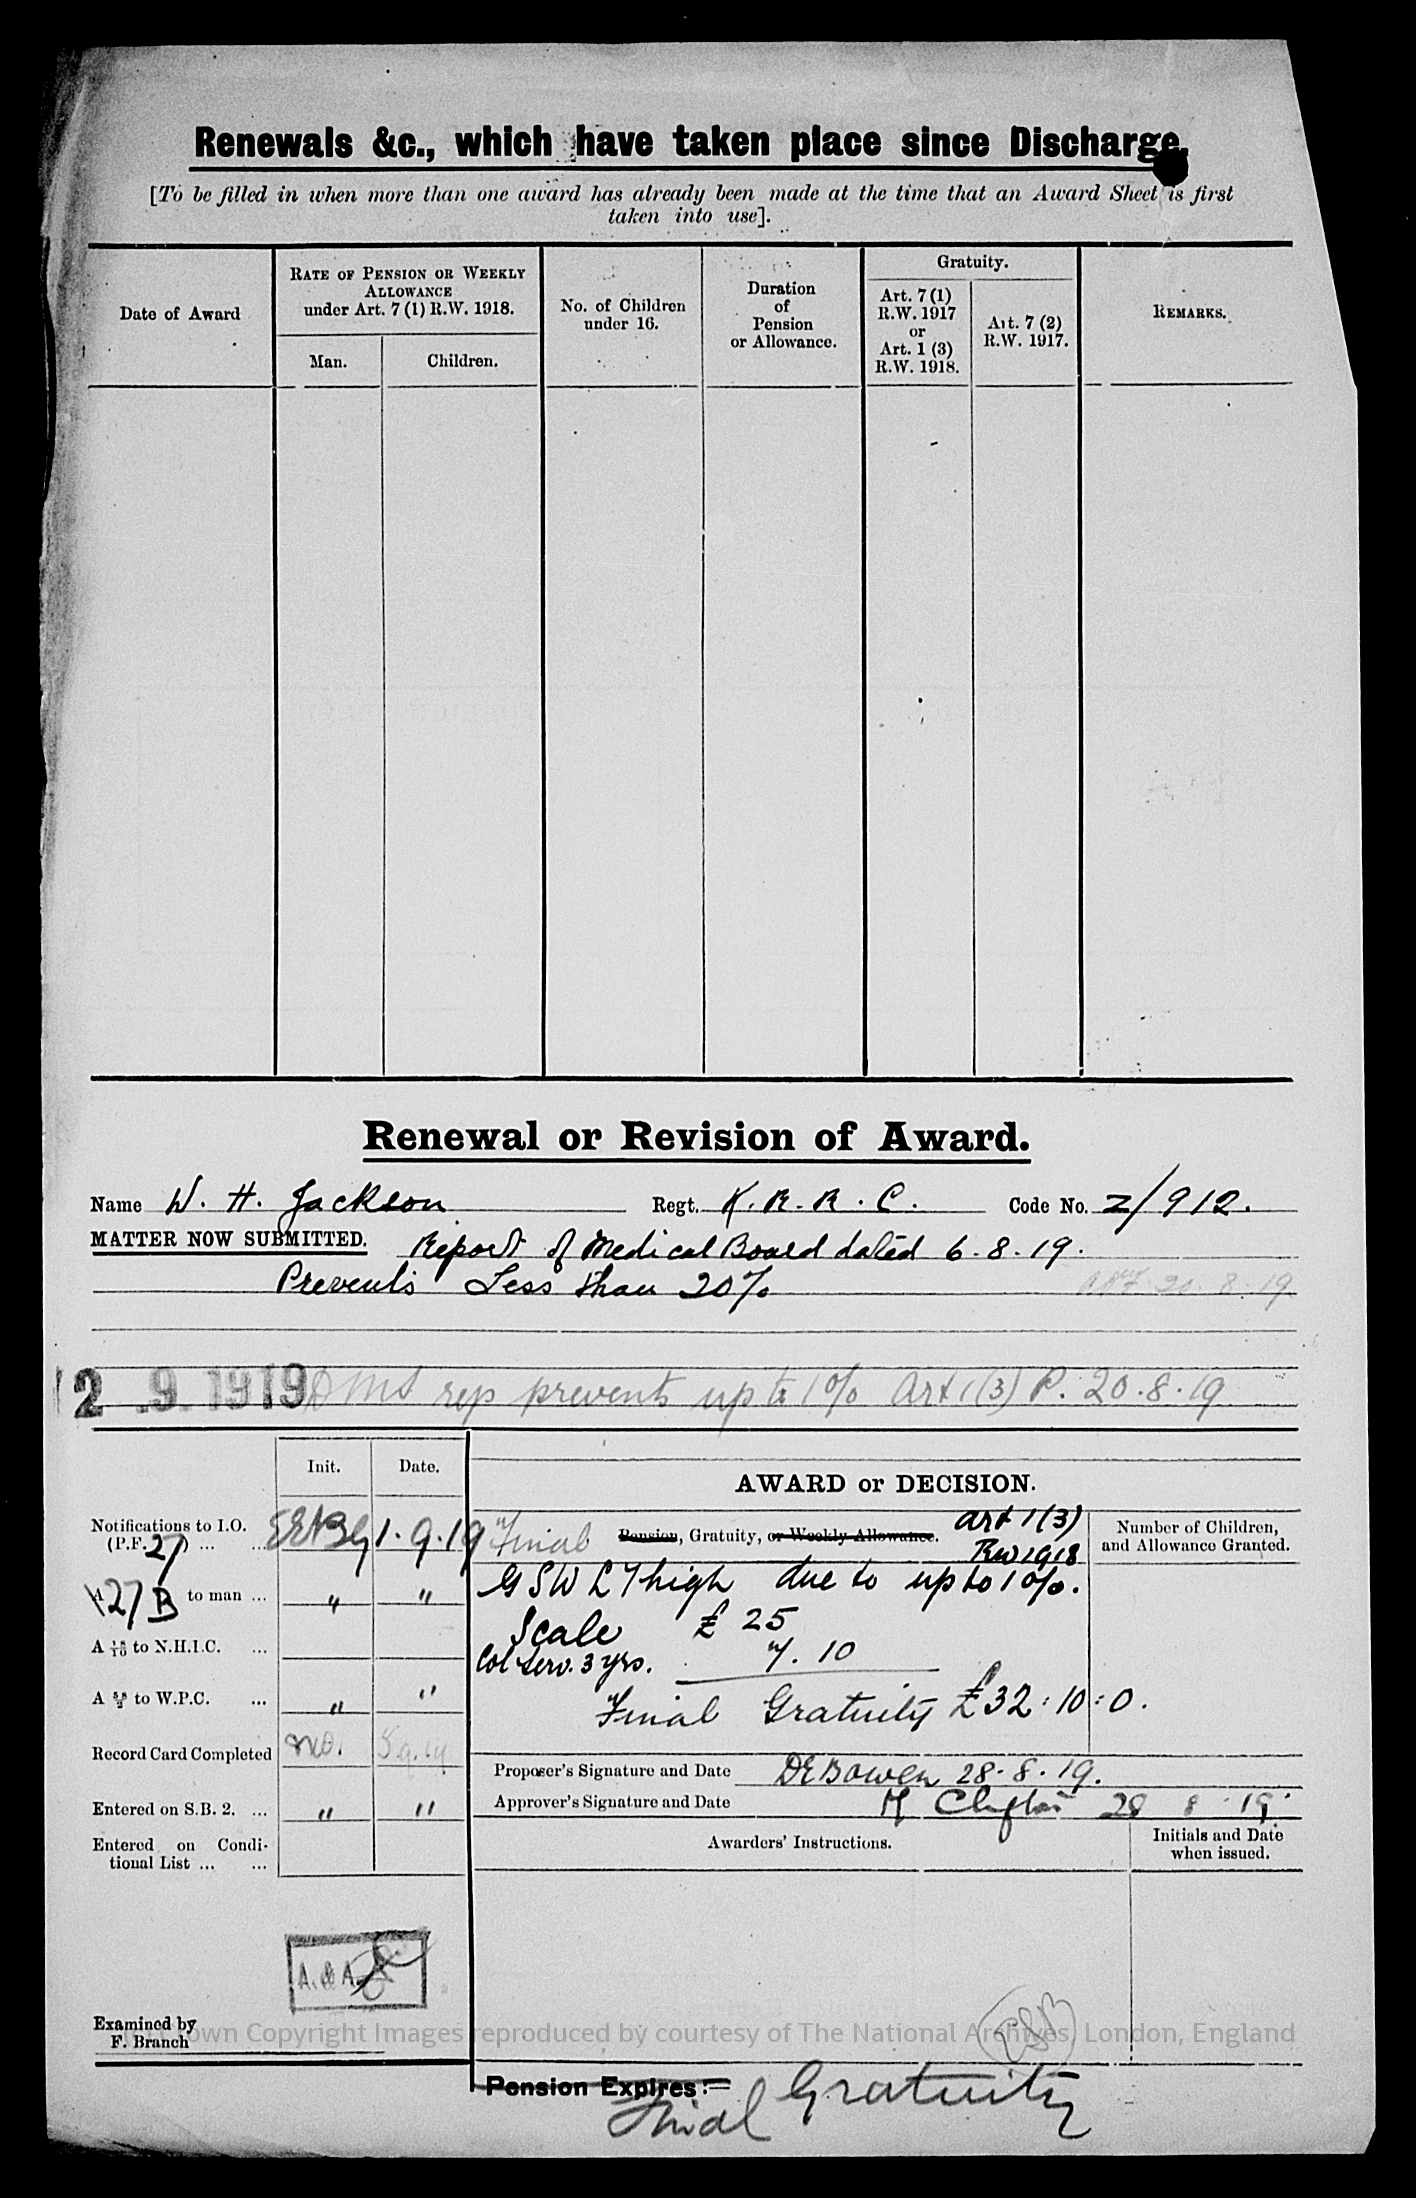 Renewals &c., which have taken place since Discharge.
[To be filled in when more than one award has already been made at the time that an Award Sheet is first
taken into use].
Date of Award
RATE OF PENSION OR WEEKLY
ALLOWANCE
under Art. 7 (1) R.W. 1918.
Man.
Children.
No. of Children
under 16.
Duration
of
Pension
or Allowance.
Gratuity.
Art. 7 (1)
R.W. 1917
or
Art. 1 (3)
R.W. 1918.
Art. 7 (2)
R.W. 1917.
REMARKS.
Renewal or Revision of Award.
Name W. H. Jackson Regt. K. R. R. C. Code No. Z/912.
MATTER NOW SUBMITTED. Report of Medical Board dated 6.8.19.
Prevents Less than 20% 20.8.19
2 .9.1919 DMS rep prevents up to 1% Art 1(3) P. 20.8.19
Init. Date.
Notifications to I.O.
(P.F. 27) ... ... 1.9.19
27 B to man ... " "
A 18/10 to N.H.I.C. ...
A to W.P.C. ... " "
Record Card Completed
Entered on S.B. 2. ... " "
Entered on Condi-
tional List ... ...
A. & A.
Examined by
F. Branch
AWARD or DECISION.
Final Pension, Gratuity, or Weekly Allowance. Art 1(3)
RW 1918
Number of Children,
and Allowance Granted.
GSW L Thigh due to up to 1%.
Scale £ 25
Col Serv. 3 yrs. 7. 10
Final Gratuity £32:10:0.
Proposer's Signature and Date DEBowen 28.8.19.
Approver's Signature and Date 28 8 . 19.
Awarders' Instructions.
Initials and Date
when issued.
Crown Copyright Images reproduced by courtesy of The National Archives, London, England
Pension Expires:— Final Gratuity